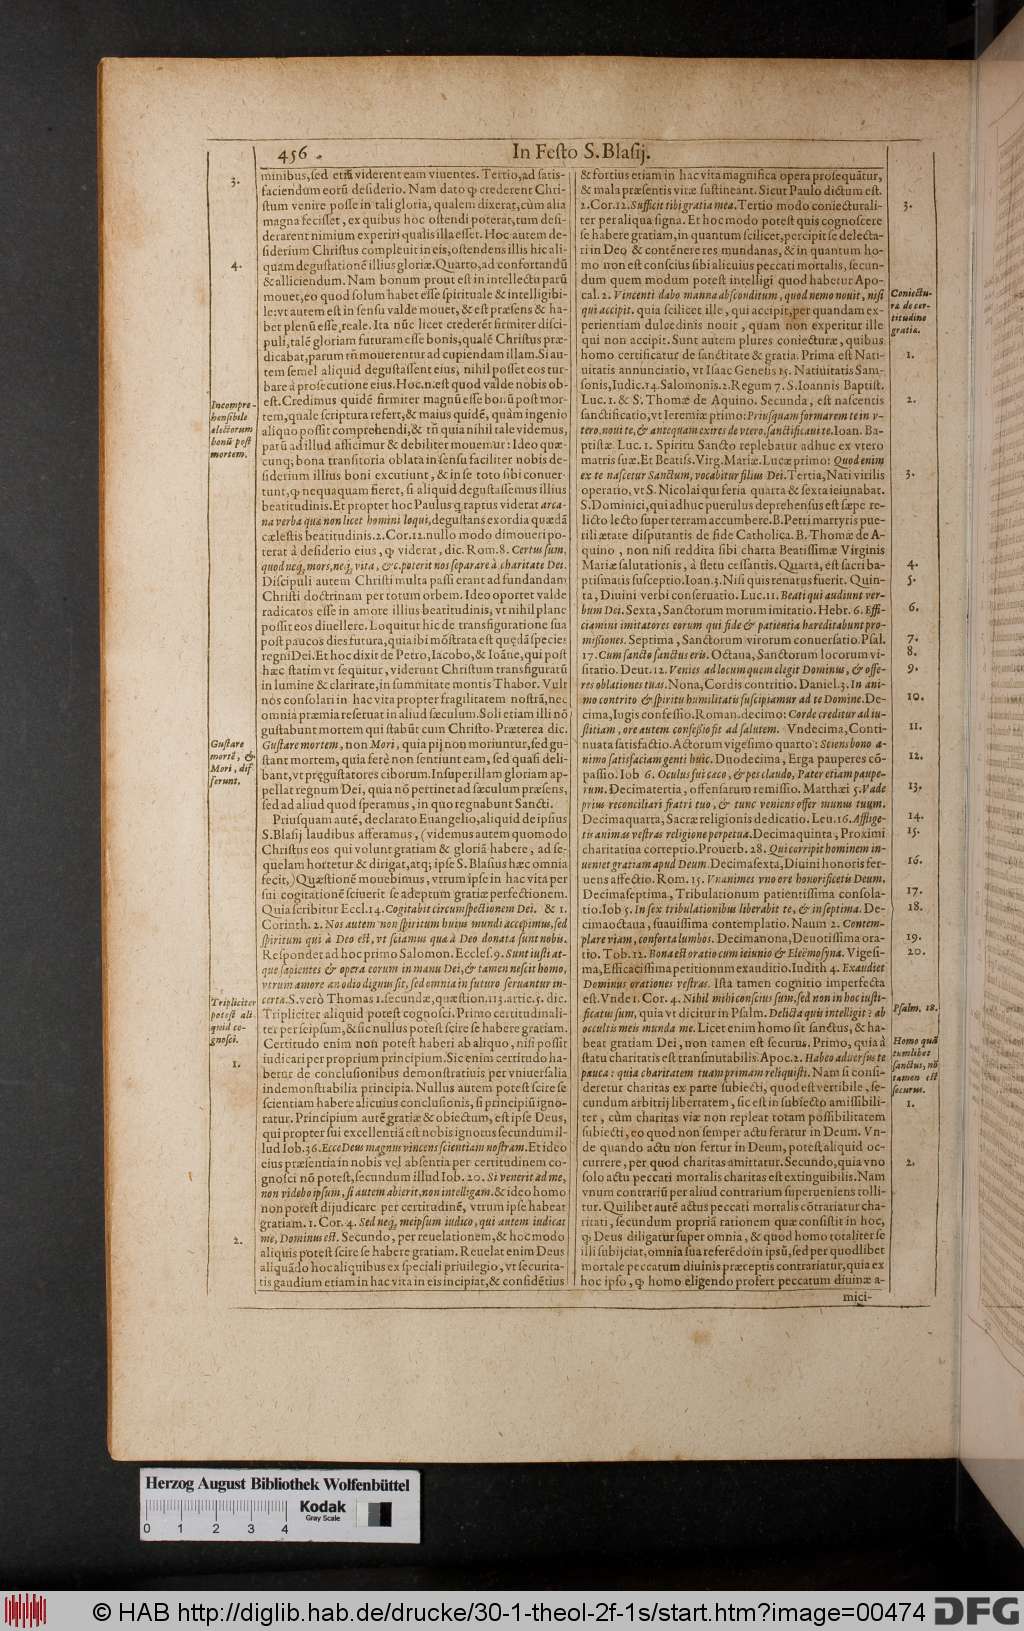 456
In Festo S. Blasij.
minibus, sed etiã viderent eam viuentes. Tertio, ad satis-
faciendum eorũ desiderio. Nam dato ꝙ crederent Chri-
stum venire posse in tali gloria, qualem dixerat, cùm alia
magna fecisset, ex quibus hoc ostendi poterat, tum desi-
derarent nimium experiri qualis illa esset. Hoc autem de-
siderium Christus compleuit in eis, ostendens illis hic ali-
quam degustationẽ illius gloriæ. Quarto, ad confortandũ
& alliciendum. Nam bonum prout est in intellectu parũ
mouet, eo quod solum habet esse spirituale & intelligibi-
le: vt autem est in sensu valde mouet, & est præsens & ha-
bet plenũ esse, reale. Ita nũc licet crederẽt firmiter disci-
puli, talẽ gloriam futuram esse bonis, qualẽ Christus præ-
dicabat, parum tñ mouerentur ad cupiendam illam. Si au-
tem semel aliquid degustassent eius, nihil posset eos tur-
bare à prosecutione eius. Hoc. n. est quod valde nobis ob-
est. Credimus quidẽ firmiter magnũ esse bonũ post mor-
tem, quale scriptura refert, & maius quidẽ, quàm ingenio
aliquo possit comprehendi, & tñ quia nihil tale videmus,
parũ ad illud afficimur & debiliter mouemur: Ideo quæ-
cunq; bona transitoria oblata in sensu faciliter nobis de-
siderium illius boni excutiunt, & in se toto sibi conuer-
tunt, ꝙ nequaquam fieret, si aliquid degustassemus illius
beatitudinis. Et propter hoc Paulus q raptus viderat arca-
na verba quæ non licet homini loqui, degustans exordia quædã
cælestis beatitudinis. 2. Cor. 12. nullo modo dimoueri po-
terat à desiderio eius, ꝙ viderat, dic. Rom. 8. Certus sum,
quod neq; mors, neq; vita, &c. poterit nos separare à charitate Dei.
Discipuli autem Christi multa passi erant ad fundandam
Christi doctrinam per totum orbem. Ideo oportet valde
radicatos esse in amore illius beatitudinis, vt nihil plane
possit eos diuellere. Loquitur hic de transfiguratione sua
post paucos dies futura, quia ibi mõstrata est quędã species
regni Dei. Et hoc dixit de Petro, Iacobo, & Ioãne, qui post
hæc statim vt sequitur, viderunt Christum transfiguratũ
in lumine & claritate, in summitate montis Thabor. Vult
nos consolati in hac vita propter fragilitatem nostrã, nec
omnia præmia reseruat in aliud sæculum. Soli etiam illi nõ
gustabunt mortem qui stabũt cum Christo. Præterea dic.
Gustare mortem, non Mori, quia pij non moriuntur, sed gu-
stant mortem, quia ferè non sentiunt eam, sed quasi deli-
bant, vt pręgustatores ciborum. Insuper illam gloriam ap-
pellat regnum Dei, quia nõ pertinet ad sæculum præsens,
sed ad aliud quod speramus, in quo regnabunt Sancti.
Priusquam autẽ, declarato Euangelio, aliquid de ipsius
S. Blasij laudibus afferamus, (videmus autem quomodo
Christus eos qui volunt gratiam & gloriã habere, ad se-
quelam hortetur & dirigat, atq; ipse S. Blasius hæc omnia
fecit,) Quæstionẽ mouebimus, vtrum ipse in hac vita per
sui cogitationẽ sciuerit se adeptum gratiæ perfectionem.
Quia scribitur Eccl. 14. Cogitabit circumspectionem Dei. & 1.
Corinth. 2. Nos autem non spiritum huius mundi accepimus, sed
spiritum qui à Deo est, vt sciamus quæ à Deo donata sunt nobis.
Respondet ad hoc primo Salomon. Eccles. 9. Sunt iusti at-
que sapientes & opera eorum in manu Dei, & tamen nescit homo,
vtrum amore an odio dignus sit, sed omnia in futuro seruantur in-
certa. S. verò Thomas 1. secundæ, quæstion. 113. artic. 5. dic.
Tripliciter aliquid potest cognosci. Primo certitudinali-
ter per seipsum, & sic nullus potest scire se habere gratiam.
Certitudo enim non potest haberi ab aliquo, nisi possit
iudicari per proprium principium. Sic enim certitudo ha-
betur de conclusionibus demonstratiuis per vniuersalia
indemonstrabilia principia. Nullus autem potest scire se
scientiam habere alicuius conclusionis, si principiũ igno-
ratur. Principium autẽ gratiæ & obiectum, est ipse Deus,
qui propter sui excellentiã est nobis ignotus secundum il-
lud Iob. 36. Ecce Deus magnus vincens scientiam nostram. Et ideo
eius præsentia in nobis vel absentia per certitudinem co-
gnosci nõ potest, secundum illud Iob. 20. Si venerit ad me,
non videbo ipsum, si autem abierit, non intelligam. & ideo homo
non potest dijudicare per certitudinẽ, vtrum ipse habeat
gratiam. 1. Cor. 4. Sed neq; meipsum iudico, qui autem iudicat
me, Dominus est. Secundo, per reuelationem, & hoc modo
aliquis potest scire se habere gratiam. Reuelat enim Deus
aliquãdo hoc aliquibus ex speciali priuilegio, vt securita-
tis gaudium etiam in hac vita in eis incipiat, & confidẽtius
3.
4.
Incompre-
hensibile
electorum
bonũ post
mortem.
Gustare
mortẽ, &
Mori, dif-
ferunt.
Tripliciter
potest ali-
quid co-
gnosci.
1.
2.
& fortius etiam in hac vita magnifica opera prosequãtur,
& mala præsentis vitæ sustineant. Sicut Paulo dictum est.
2. Cor. 12. Sufficit tibi gratia mea. Tertio modo coniecturali-
ter per aliqua signa. Et hoc modo potest quis cognoscere
se habere gratiam, in quantum scilicet, percipit se delecta-
ri in Deo & contẽnere res mundanas, & in quantum ho-
mo non est conscius sibi alicuius peccati mortalis, secun-
dum quem modum potest intelligi quod habetur Apo-
cal. 2. Vincenti dabo manna absconditum, quod nemo nouit, nisi
qui accipit. quia scilicet ille, qui accipit, per quandam ex-
perientiam dulcedinis nouit, quam non experitur ille
qui non accipit. Sunt autem plures coniecturæ, quibus
homo certificatur de sanctitate & gratia. Prima est Nati-
uitatis annunciatio, vt Isaac Genesis 15. Natiuitatis Sam-
sonis, Iudic. 14. Salomonis. 2. Regum 7. S. Ioannis Baptist.
Luc. 1. & S. Thomæ de Aquino. Secunda, est nascentis
sanctificatio, vt Ieremiæ primo: Priusquam formarem te in v-
tero, noui te, & antequam exires de vtero, sanctificaui te. Ioan. Ba-
ptistæ. Luc. 1. Spiritu Sancto replebatur adhuc ex vtero
matris suæ. Et Beatiss. Virg. Mariæ. Lucæ primo: Quod enim
ex te nascetur Sanctum, vocabitur filius Dei. Tertia, Nati virilis
operatio, vt S. Nicolai qui feria quarta & sexta ieiunabat.
S. Dominici, qui adhuc puerulus deprehensus est sæpe re-
licto lecto super terram accumbere. B. Petri martyris pue-
rili ætate disputantis de fide Catholica. B. Thomæ de A-
quino, non nisi reddita sibi charta Beatissimæ Virginis
Mariæ salutationis, à fletu cessantis. Quarta, est sacri ba-
ptismatis susceptio. Ioan. 3. Nisi quis renatus fuerit. Quin-
ta, Diuini verbi conseruatio. Luc. 11. Beati qui audiunt ver-
bum Dei. Sexta, Sanctorum morum imitatio. Hebr. 6. Effi-
ciamini imitatores eorum qui fide & patientia hæreditabunt pro-
missiones. Septima, Sanctorum virorum conuersatio. Psal.
17. Cum sancto sanctus eris. Octaua, Sanctorum locorum vi-
sitatio. Deut. 12. Venies ad locum quem elegit Dominus, & offe-
res oblationes tuas. Nona, Cordis contritio. Daniel. 3. In ani-
mo contrito & spiritu humilitatis suscipiamur ad te Domine. De-
cima, Iugis confessio. Roman. decimo: Corde creditur ad iu-
stitiam, ore autem confessio fit ad salutem. Vndecima, Conti-
nuata satisfactio. Actorum vigesimo quarto: Sciens bono a-
nimo satisfaciam genti huic. Duodecima, Erga pauperes cõ-
passio. Iob 6. Oculus fui cæco, & pes claudo, Pater etiam paupe-
rum. Decimatertia, offensarum remissio. Matthæi 5. Vade
prius reconciliari fratri tuo, & tunc veniens offer munus tuum.
Decimaquarta, Sacræ religionis dedicatio. Leu. 16. Afflige-
tis animas vestras religione perpetua. Decimaquinta, Proximi
charitatiua correptio. Prouerb. 28. Qui corripit hominem in-
ueniet gratiam apud Deum. Decimasexta, Diuini honoris fer-
uens affectio. Rom. 15. Vnanimes vno ore honorificetis Deum.
Decimaseptima, Tribulationum patientissima consola-
tio. Iob 5. In sex tribulationibus liberabit te, & in septima. De-
cimaoctaua, suauissima contemplatio. Naum 2. Contem-
plare viam, conforta lumbos. Decimanona, Deuotissima ora-
tio. Tob. 12. Bona est oratio cum ieiunio & Eleëmosyna. Vigesi-
ma, Efficacissima petitionum exauditio. Iudith 4. Exaudiet
Dominus orationes vestras. Ista tamen cognitio imperfecta
est. Vnde 1. Cor. 4. Nihil mihi conscius sum, sed non in hoc iusti-
ficatus sum, quia vt dicitur in Psalm. Delicta quis intelligit? ab
occultis meis munda me. Licet enim homo sit sanctus, & ha-
beat gratiam Dei, non tamen est securus. Primo, quia à
statu charitatis est transmutabilis. Apoc. 2. Habeo aduersus te
pauca: quia charitatem tuam primam reliquisti. Nam si consi-
deretur charitas ex parte subiecti, quod est vertibile, se-
cundum arbitrij libertatem, sic est in subiecto amissibili-
ter, cùm charitas viæ non repleat totam possibilitatem
subiecti, eo quod non semper actu feratur in Deum. Vn-
de quando actu non fertur in Deum, potest aliquid oc-
currere, per quod charitas amittatur. Secundo, quia vno
solo actu peccati mortalis charitas est extinguibilis. Nam
vnum contrariũ per aliud contrarium superueniens tolli-
tur. Quilibet autẽ actus peccati mortalis cõtrariatur cha-
ritati, secundum propriã rationem quæ consistit in hoc,
ꝙ Deus diligatur super omnia, & quod homo totaliter se
illi subijciat, omnia sua referẽdo in ipsũ, sed per quodlibet
mortale peccatum diuinis præceptis contrariatur, quia ex
hoc ipso, ꝙ homo eligendo profert peccatum diuinæ a-
mici-
3.
Coniectu-
ræ de cer-
titudine
gratiæ.
1.
2.
3.
4.
5.
6.
7.
8.
9.
10.
11.
12.
13.
14.
15.
16.
17.
18.
19.
20.
Psalm. 18.
Homo quã
tumlibet
sanctus, nõ
tamen est
securus.
1.
2.
Herzog August Bibliothek Wolfenbüttel
Kodak
Gray Scale
0 1 2 3 4
© HAB http://diglib.hab.de/drucke/30-1-theol-2f-1s/start.htm?image=00474
DFG